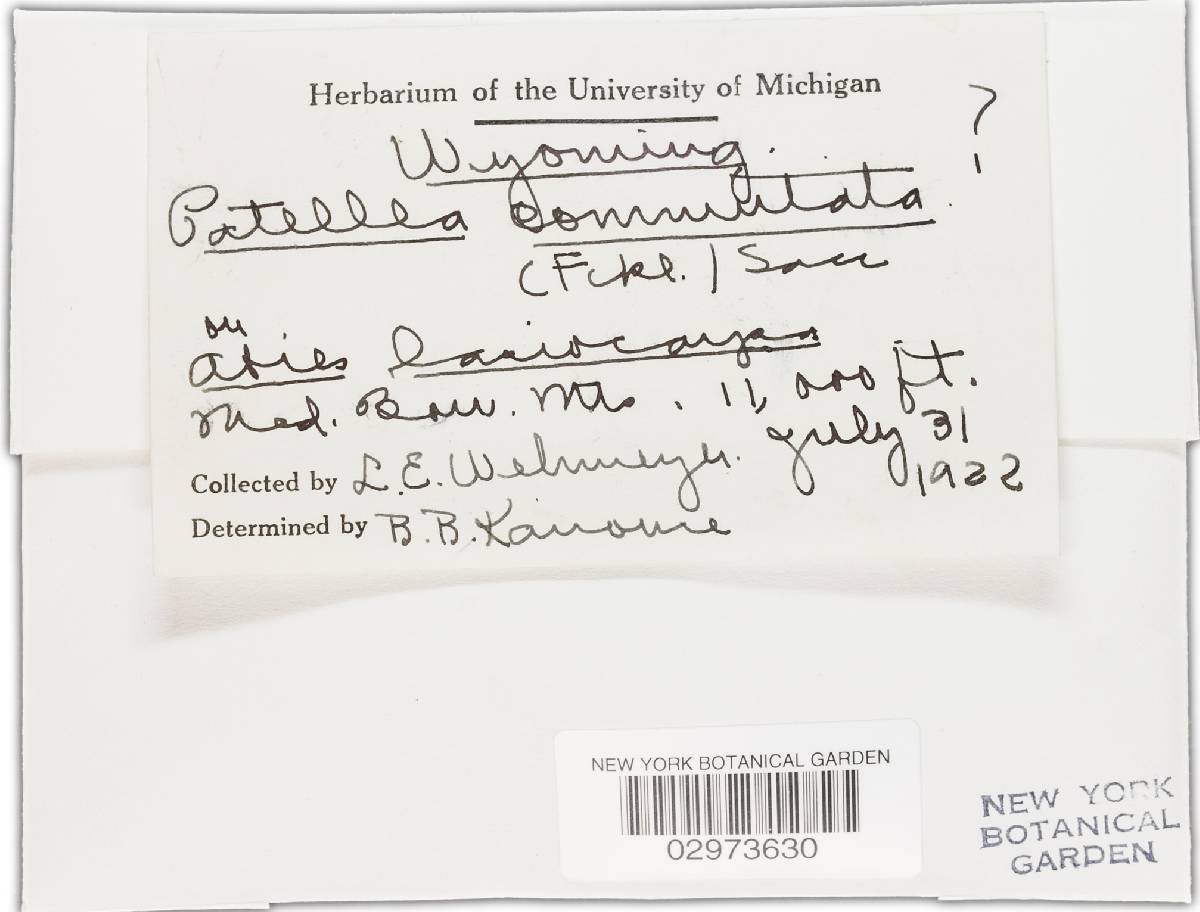 Herbarium of the University of Michigan
Wyoming. ?
Patellea commutata.
(Fckl.) Sacc
on
Abies lasiocarpa
Med. Bow. Mts. 11,000 ft.
Collected by L.E. Wehmeyer. July 31
1922
Determined by B.B. Kanouse
NEW YORK BOTANICAL GARDEN
02973630
NEW YORK
BOTANICAL
GARDEN